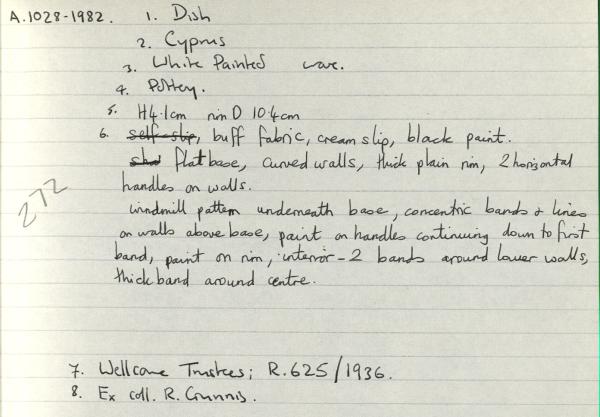 A.1028-1982. 1. Dish
2. Cyprus
3. White Painted ware.
4. Pottery.
5. H4.1cm rim D 10.4cm
6. self-slip, buff fabric, cream slip, black paint.
sho flat base, curved walls, thick plain rim, 2 horizontal
handles on walls.
windmill pattern underneath base, concentric bands & lines
on walls above base, paint on handles continuing down to first
band, paint on rim, interior - 2 bands around lower walls,
thick band around centre.
272
7. Wellcome Trustees; R.625/1936.
8. Ex coll. R. Gunnis.